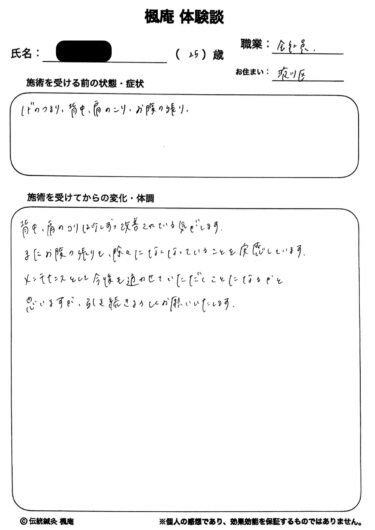 楓庵 体験談
氏名：
（ 25 ）歳
職業： 会社員.
お住まい： 荒川区
施術を受ける前の状態・症状
背中、肩のこり、お腹の張り.
施術を受けてからの変化・体調
背中、肩のコリは少しずつ改善されている気がします.
またお腹の張りも、除々になくなっていることを実感しています.
メンテナンスとして今後も通わせていただくことになるかと
思いますが、引き続きよろしくお願いいたします.
© 伝統鍼灸 楓庵
※個人の感想であり、効果効能を保証するものではありません。